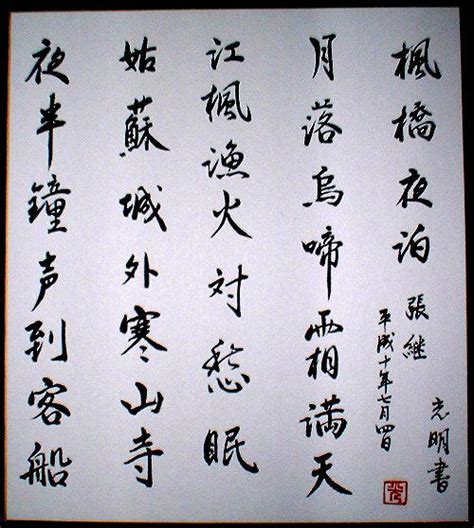 楓橋夜泊
張継
月落烏啼霜満天
江楓漁火対愁眠
姑蘇城外寒山寺
夜半鐘声到客船
平成十年七月四日
光明書